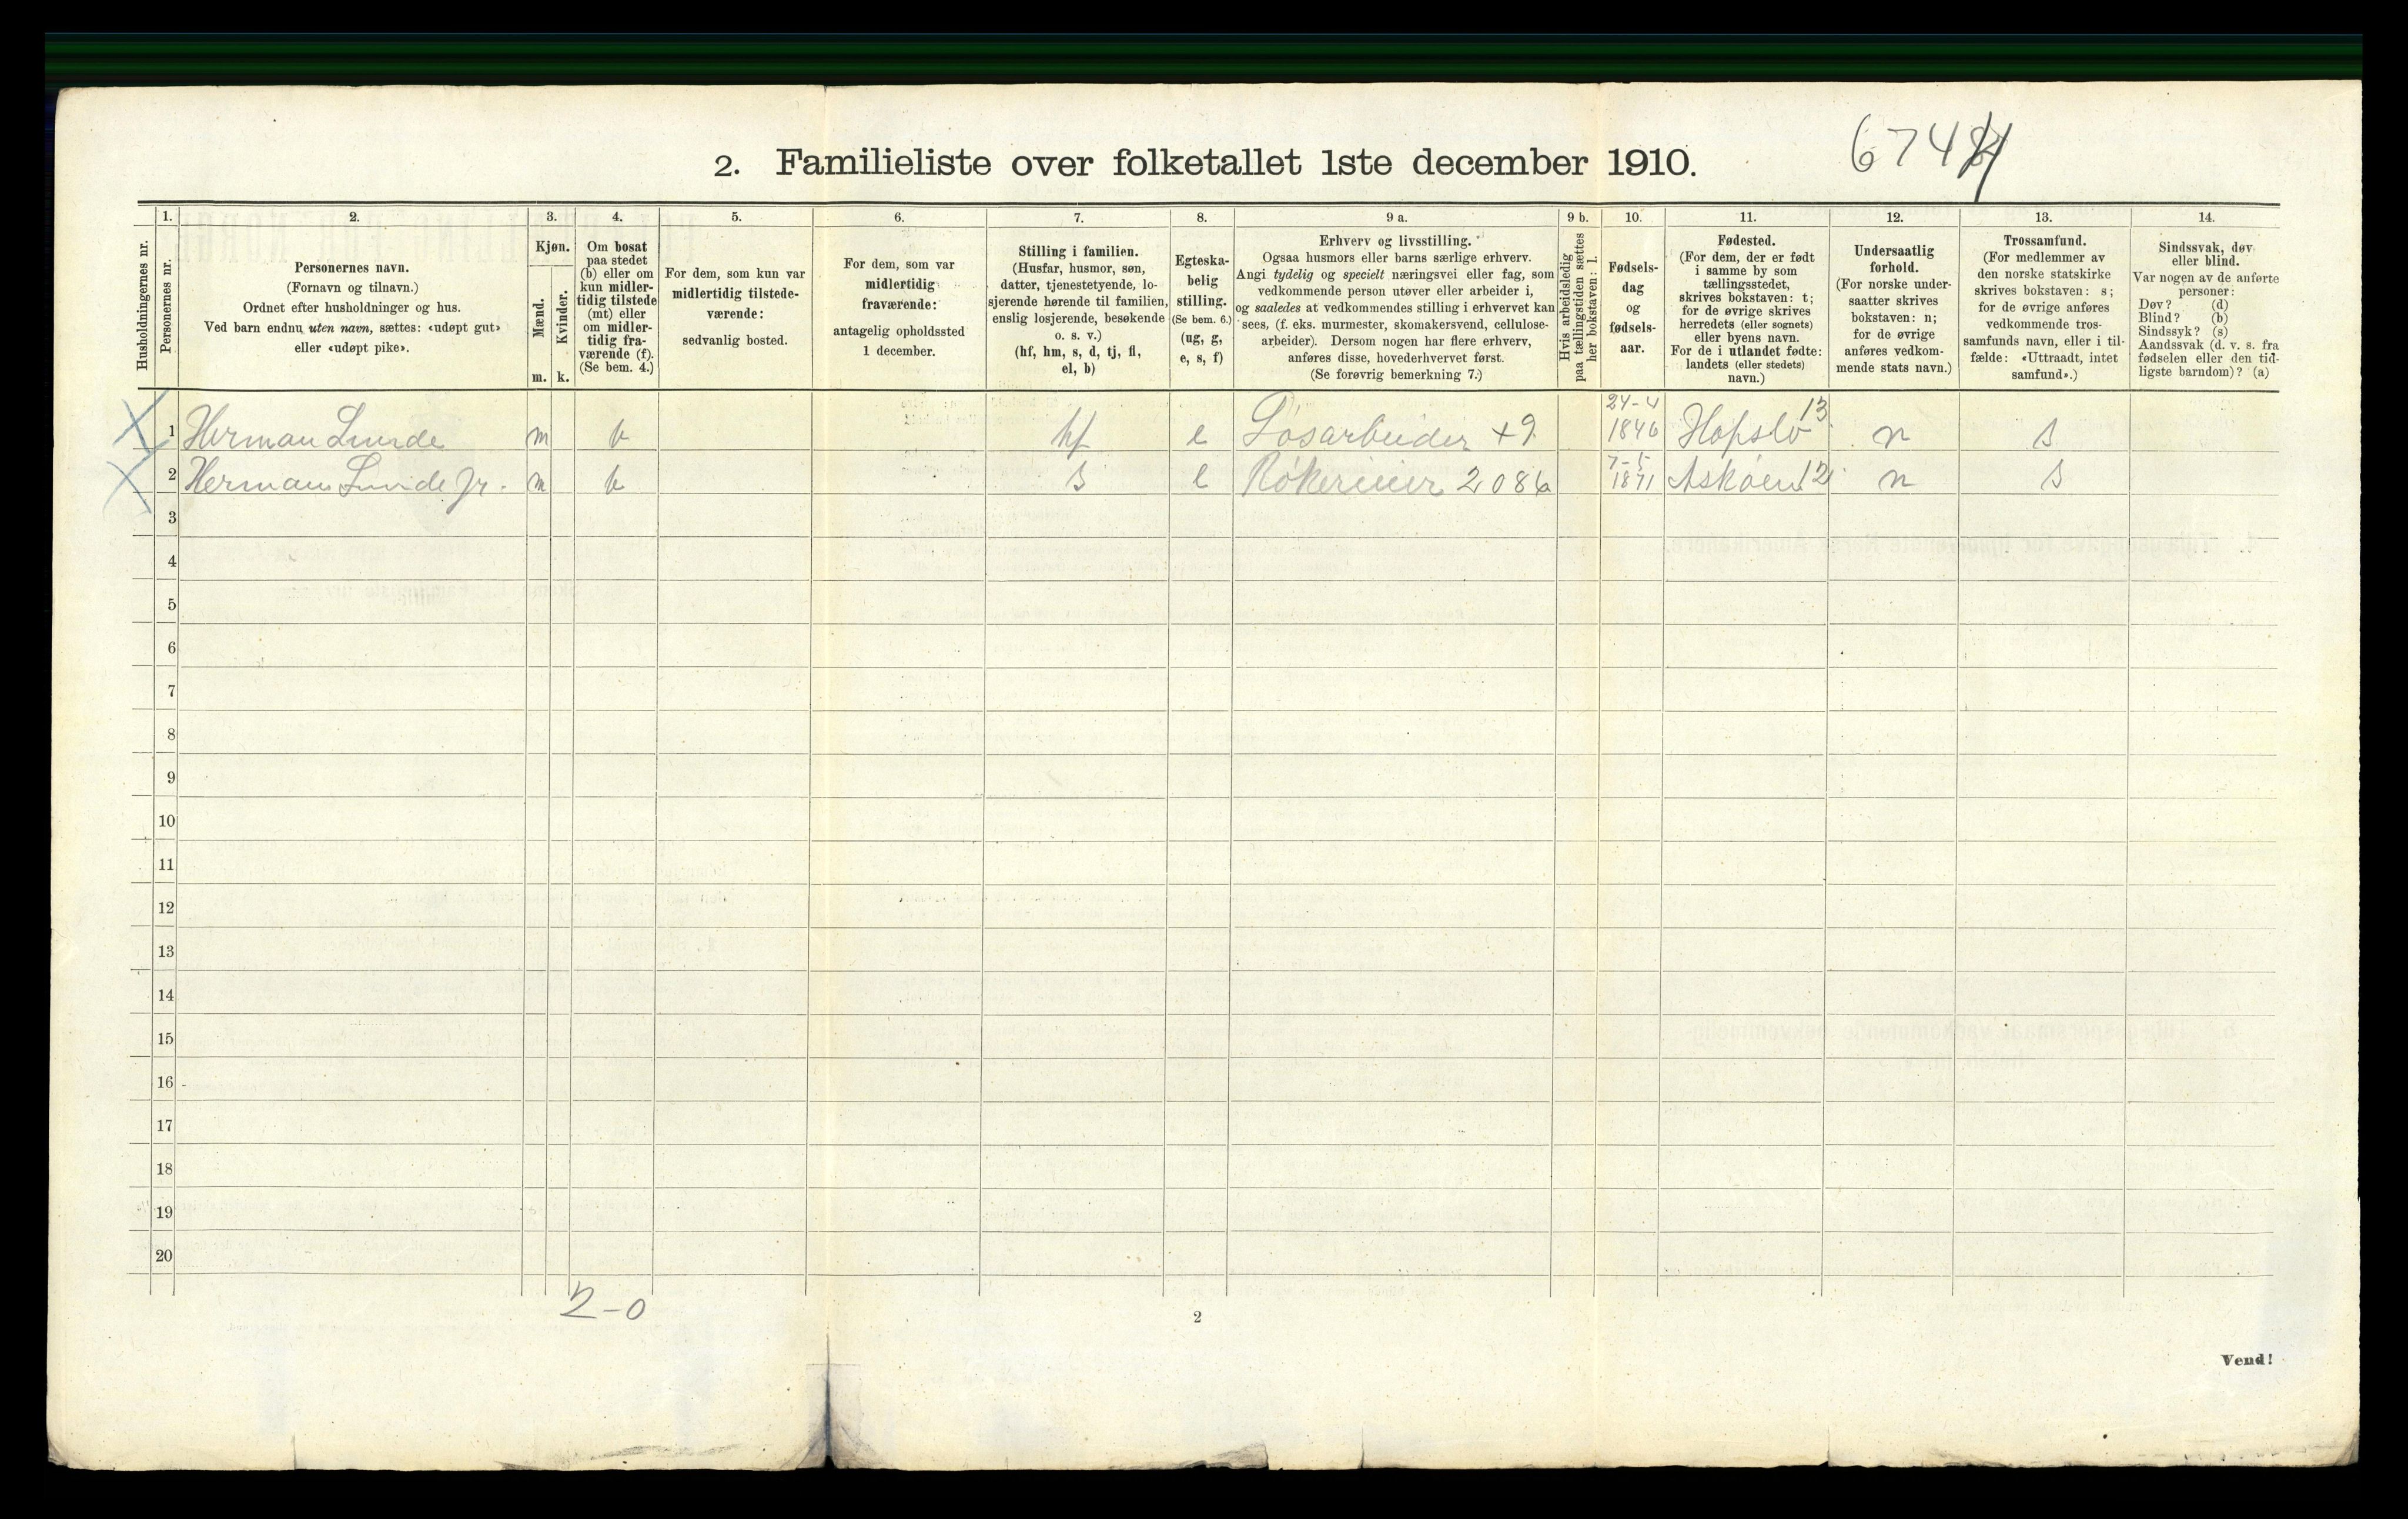 674
2. Familieliste over folketallet 1ste december 1910.
1. 2. 3. 4. 5. 6. 7. 8. 9 a. 9 b. 10. 11. 12. 13. 14.
Husholdningernes nr.
Personernes nr.
Personernes navn.
(Fornavn og tilnavn.)
Ordnet efter husholdninger og hus.
Ved barn endnu uten navn, sættes: «udøpt gut»
eller «udøpt pike».
Kjøn.
Mænd.
Kvinder.
m. k.
Om bosat
paa stedet
(b) eller om
kun midler-
tidig tilstede
(mt) eller
om midler-
tidig fra-
værende (f).
(Se bem. 4.)
For dem, som kun var
midlertidig tilstede-
værende:
sedvanlig bosted.
For dem, som var
midlertidig
fraværende:
antagelig opholdssted
1 december.
Stilling i familien.
(Husfar, husmor, søn,
datter, tjenestetyende, lo-
sjerende hørende til familien,
enslig losjerende, besøkende
o. s. v.)
(hf, hm, s, d, tj, fl,
el, b)
Egteska-
belig
stilling.
(Se bem. 6.)
(ug, g,
e, s, f)
Erhverv og livsstilling.
Ogsaa husmors eller barns særlige erhverv.
Angi tydelig og specielt næringsvei eller fag, som
vedkommende person utøver eller arbeider i,
og saaledes at vedkommendes stilling i erhvervet kan
sees, (f. eks. murmester, skomakersvend, cellulose-
arbeider). Dersom nogen har flere erhverv,
anføres disse, hovederhvervet først.
(Se forøvrig bemerkning 7.)
Hvis arbeidsledig
paa tællingstiden sættes
her bokstaven: l.
Fødsels-
dag
og
fødsels-
aar.
Fødested.
(For dem, der er født
i samme by som
tællingsstedet,
skrives bokstaven: t;
for de øvrige skrives
herredets (eller sognets)
eller byens navn.
For de i utlandet fødte:
landets (eller stedets)
navn.)
Undersaatlig
forhold.
(For norske under-
saatter skrives
bokstaven: n;
for de øvrige
anføres vedkom-
mende stats navn.)
Trossamfund.
(For medlemmer av
den norske statskirke
skrives bokstaven: s;
for de øvrige anføres
vedkommende tros-
samfunds navn, eller i til-
fælde: «Uttraadt, intet
samfund».)
Sindssvak, døv
eller blind.
Var nogen av de anførte
personer:
Døv? (d)
Blind? (b)
Sindssyk? (s)
Aandssvak (d. v. s. fra
fødselen eller den tid-
ligste barndom)? (a)
1 Herman Lunde m b hf e Løsarbeider +9 24-4 1846 Hafslo 13 n s
2 Herman Lunde Jr. m b s e Røkerieier 2086 7-5 1871 Askøen 12 n s
3
4
5
6
7
8
9
10
11
12
13
14
15
16
17
18
19
20
2-0
2
Vend!